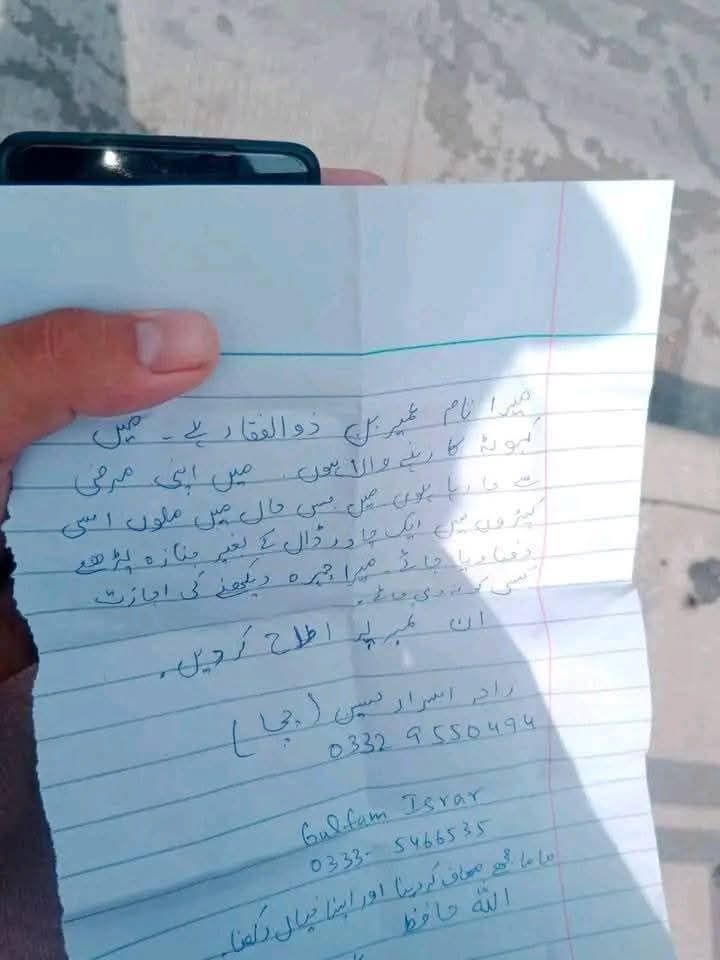 میرا نام عمیر بن ذوالفقار ہے۔ میں
کہوٹہ کا رہنے والا ہوں۔ میں اپنی مرضی
سے جا رہا ہوں میں جس حال میں ملوں اسی
کپڑوں میں ایک چادر ڈال کے بغیر جنازہ پڑھے
دفنا دیا جائے۔ میرا چہرہ دیکھنے کی اجازت
کسی کو نہ دی جائے۔
ان نمبر پر اطلاح کر دیں۔
راجہ اسرار (چچا)
0332 9550494
Gulfam Israr
0333- 5466535
ماما مجھے معاف کر دینا اور اپنا خیال رکھنا۔
اللہ حافظ